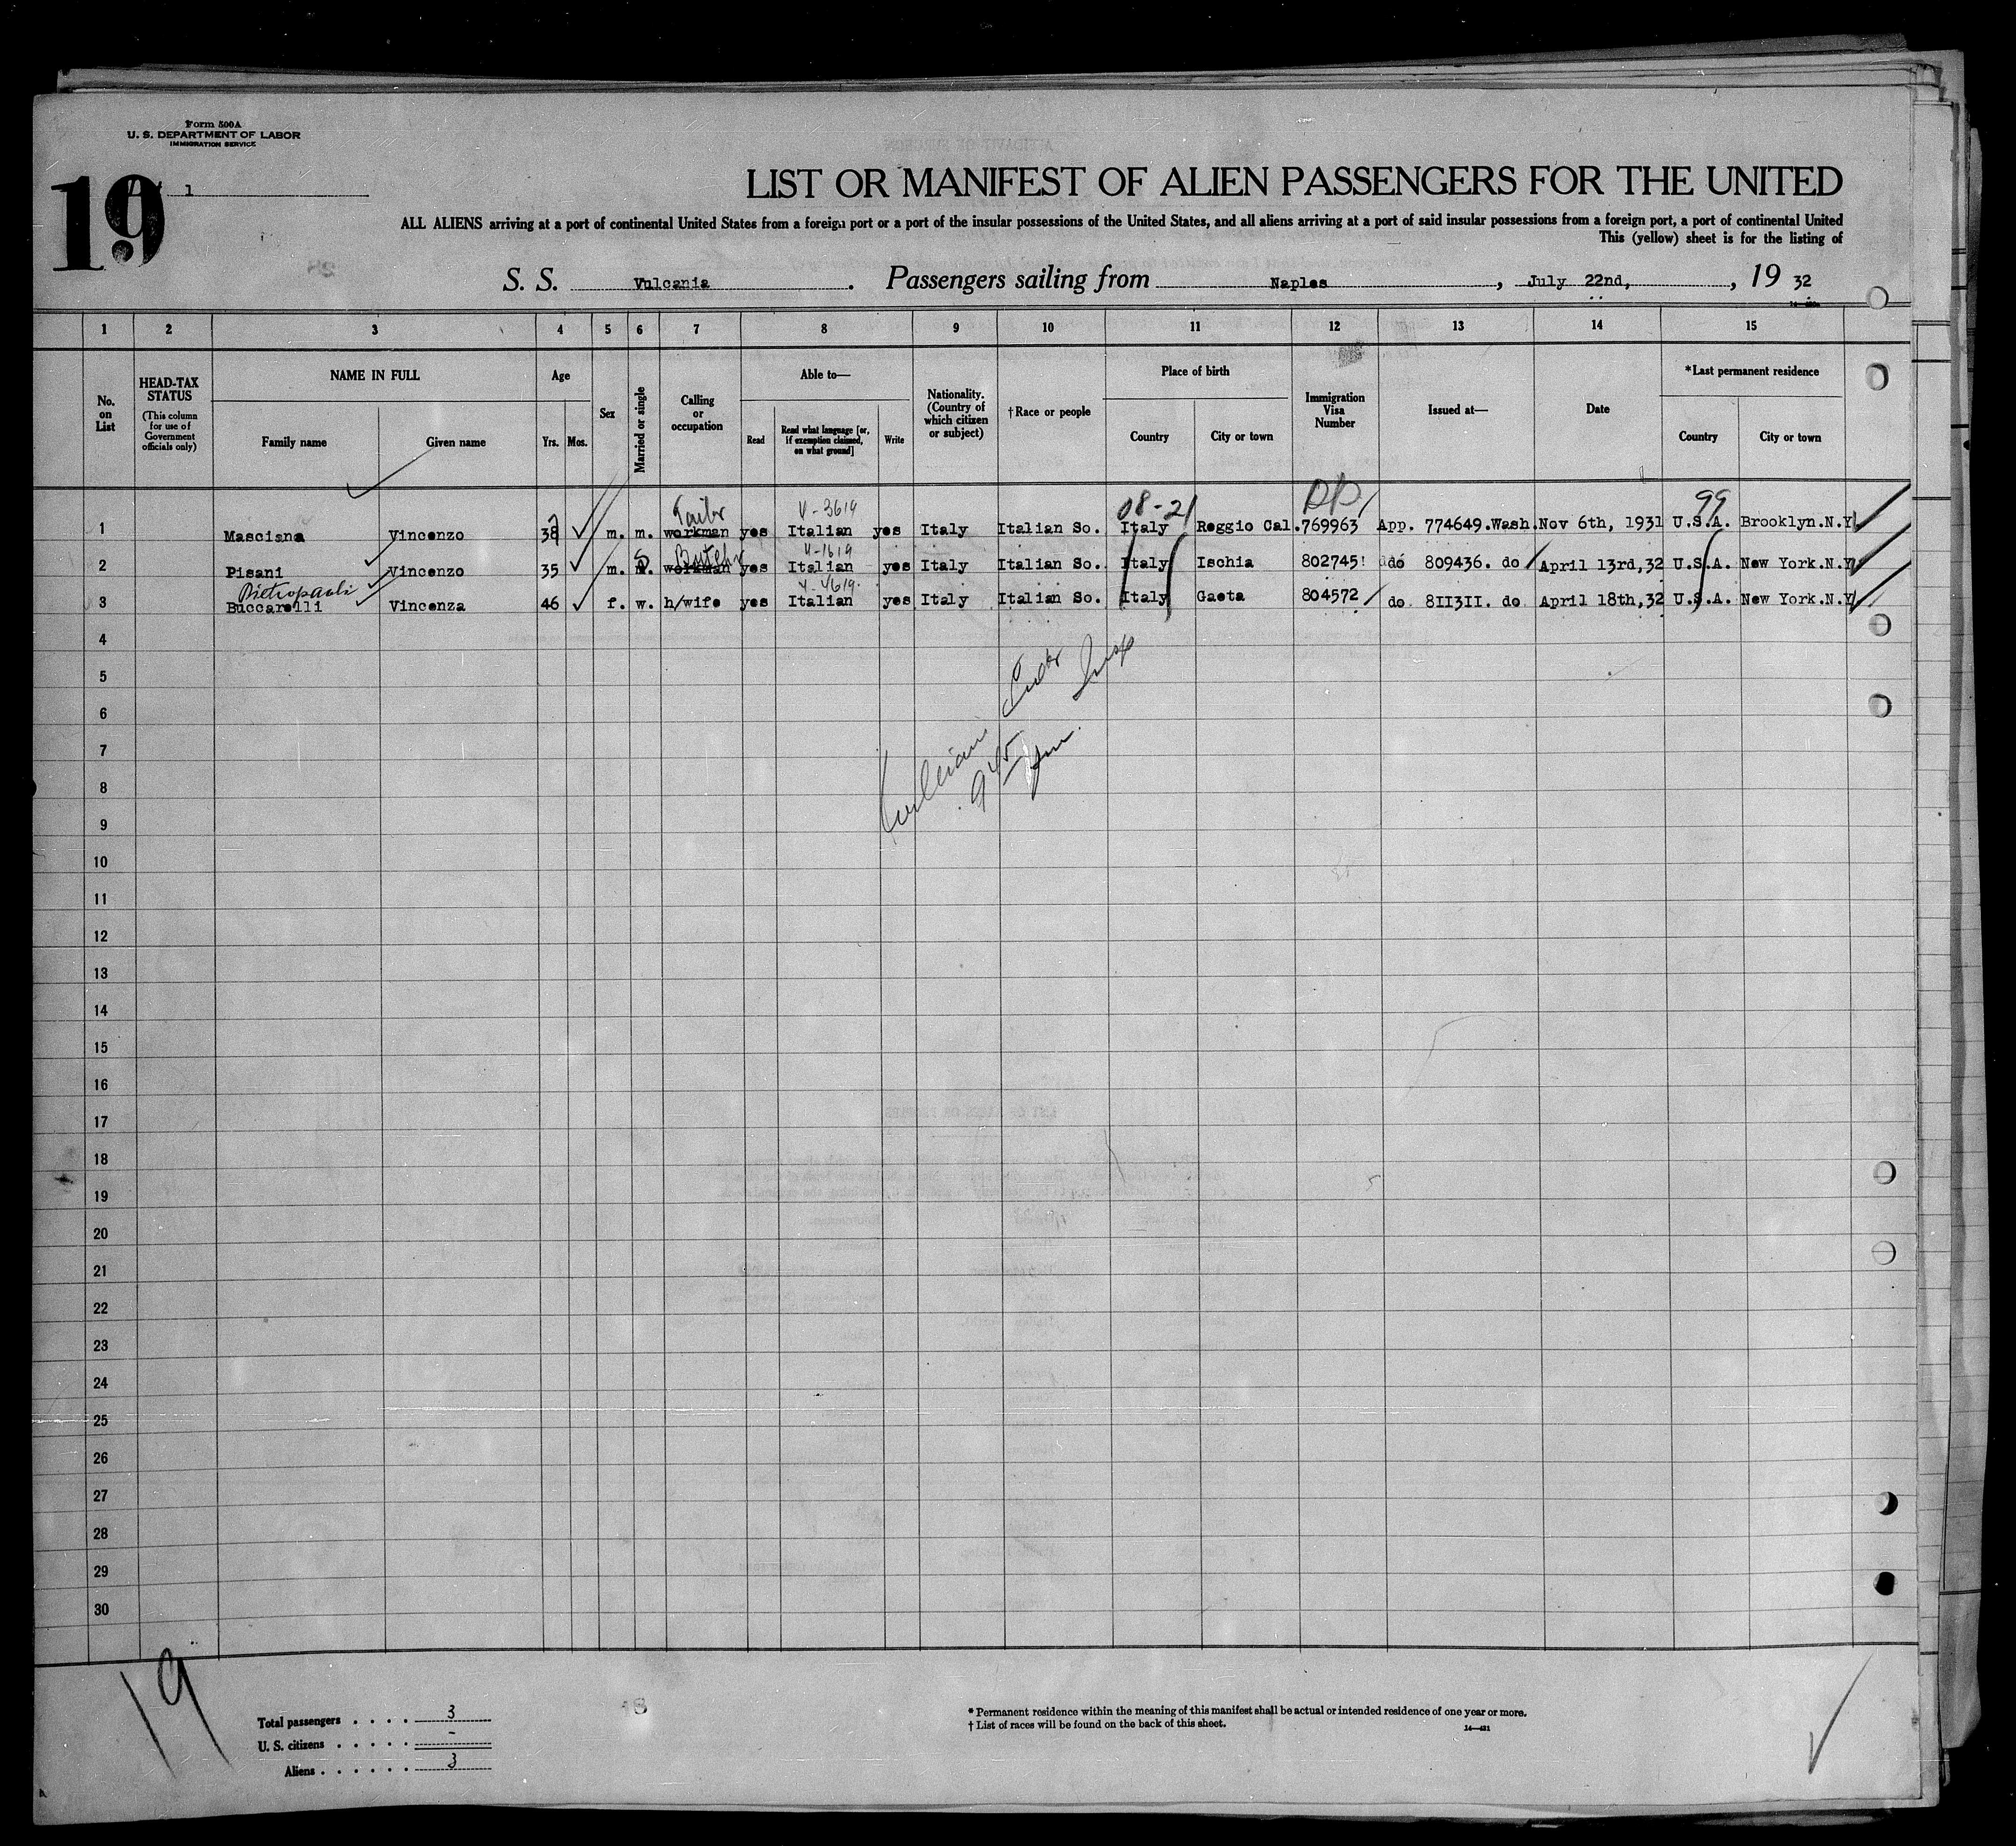 Form 500A
U. S. DEPARTMENT OF LABOR
IMMIGRATION SERVICE
19
1
LIST OR MANIFEST OF ALIEN PASSENGERS FOR THE UNITED
ALL ALIENS arriving at a port of continental United States from a foreign port or a port of the insular possessions of the United States, and all aliens arriving at a port of said insular possessions from a foreign port, a port of continental United
This (yellow) sheet is for the listing of
S. S. Vulcania. Passengers sailing from Naples, July 22nd, , 19 32
1 2 3 4 5 6 7 8 9 10 11 12 13 14 15
No. on List
HEAD-TAX STATUS (This column for use of Government officials only)
NAME IN FULL
Family name Given name
Age
Yrs. Mos.
Sex
Married or single
Calling or occupation
Able to—
Read Read what language [or, if exemption claimed, on what ground] Write
Nationality. (Country of which citizen or subject)
†Race or people
Place of birth
Country City or town
Immigration Visa Number
Issued at—
Date
*Last permanent residence
Country City or town
Tailor V-3619 08-21 99
1 Masciana Vincenzo 38 m. m. workman yes Italian yes Italy Italian So. Italy Reggio Cal. 769963 App. 774649.Wash. Nov 6th, 1931 U.S.A. Brooklyn.N.Y.
S V-1619
2 Pisani Vincenzo 35 m. workman yes Italian yes Italy Italian So. Italy Ischia 802745 do 809436. do April 13rd,32 U.S.A. New York.N.Y.
Pietropaoli
3 Buccarelli Vincenza 46 f. w. h/wife yes Italian yes Italy Italian So. Italy Gaeta 804572 do 8II3II. do April 18th,32 U.S.A. New York.N.Y.
4
5
6
7
8
9
10
11
12
13
14
15
16
17
18
19
20
21
22
23
24
25
26
27
28
29
30
19
Total passengers . . . . 3
U. S. citizens . . . . . -
Aliens . . . . . . 3
18
* Permanent residence within the meaning of this manifest shall be actual or intended residence of one year or more.
† List of races will be found on the back of this sheet.